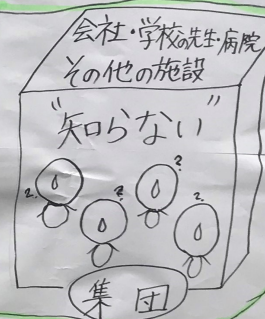 会社・学校の先生・病院
その他の施設
"知らない"
? ? ? ?
集団